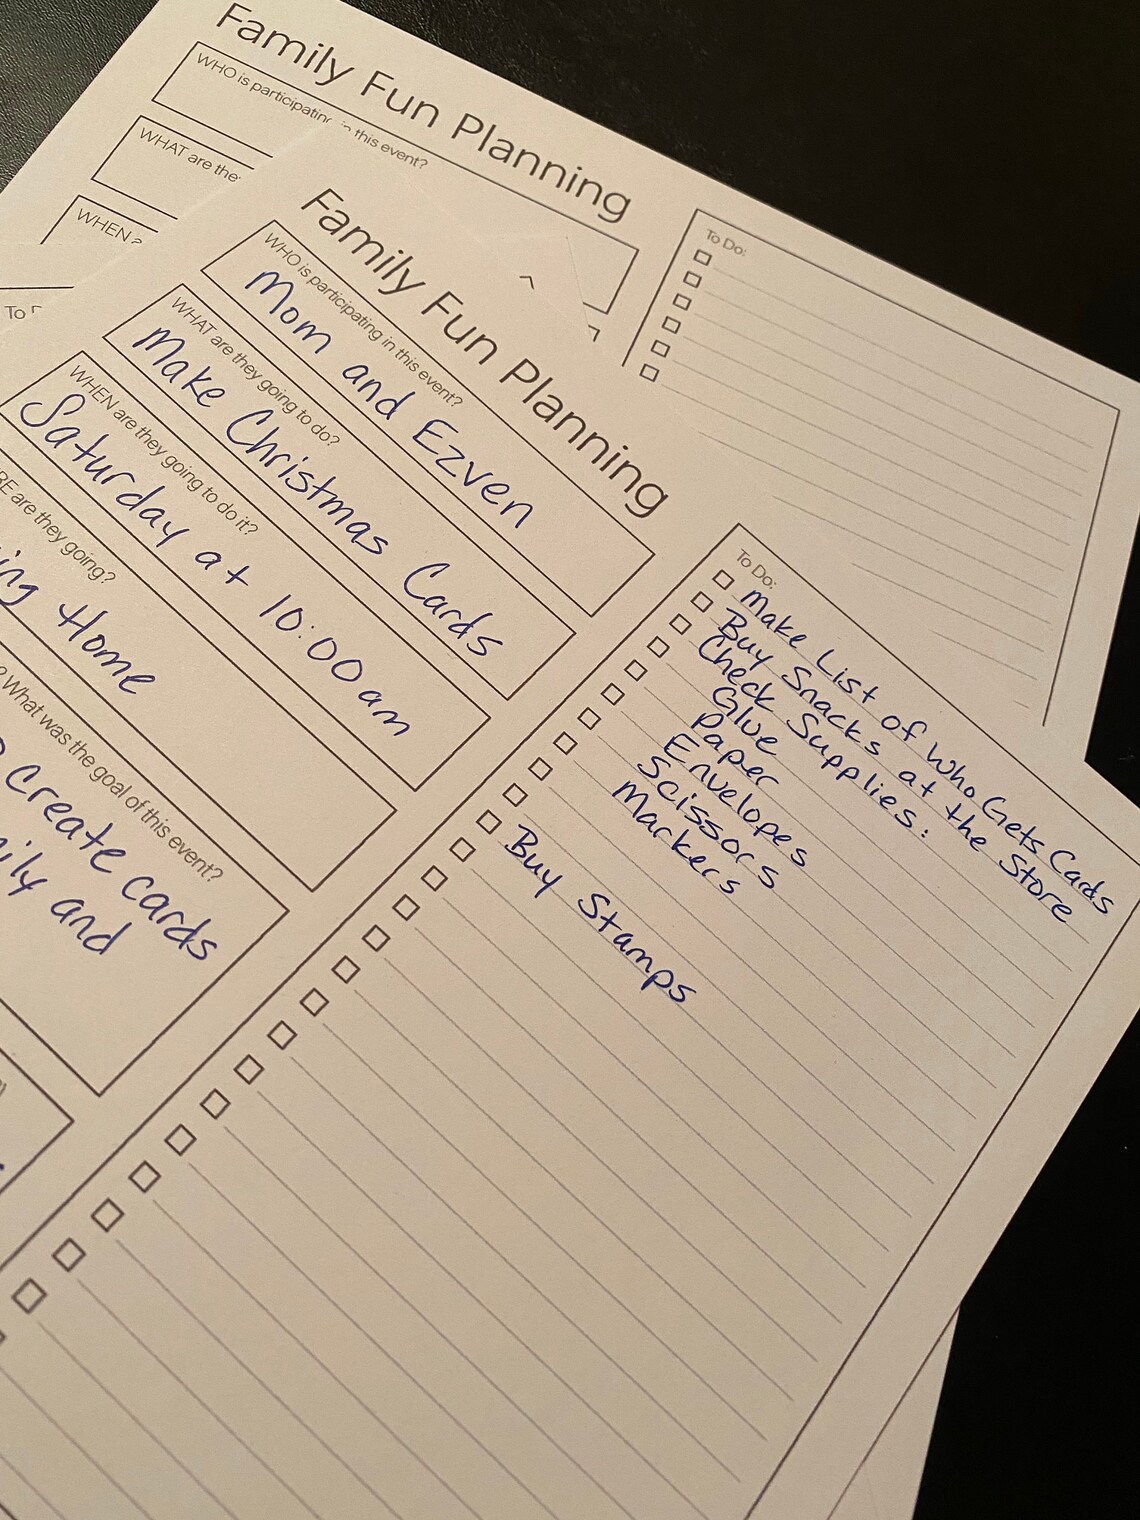 Family Fun Planning
WHO is participating in this event?
WHAT are the
WHEN a
To Do:
To
Family Fun Planning
WHO is participating in this event?
Mom and Ezven
WHAT are they going to do?
Make Christmas Cards
WHEN are they going to do it?
Saturday at 10:00am
RE are they going?
ing Home
? What was the goal of this event?
create cards
ily and
To Do:
Make List of Who Gets Cards
Buy Snacks at the Store
Check Supplies:
Glue
Paper
Envelopes
Scissors
Markers
Buy Stamps